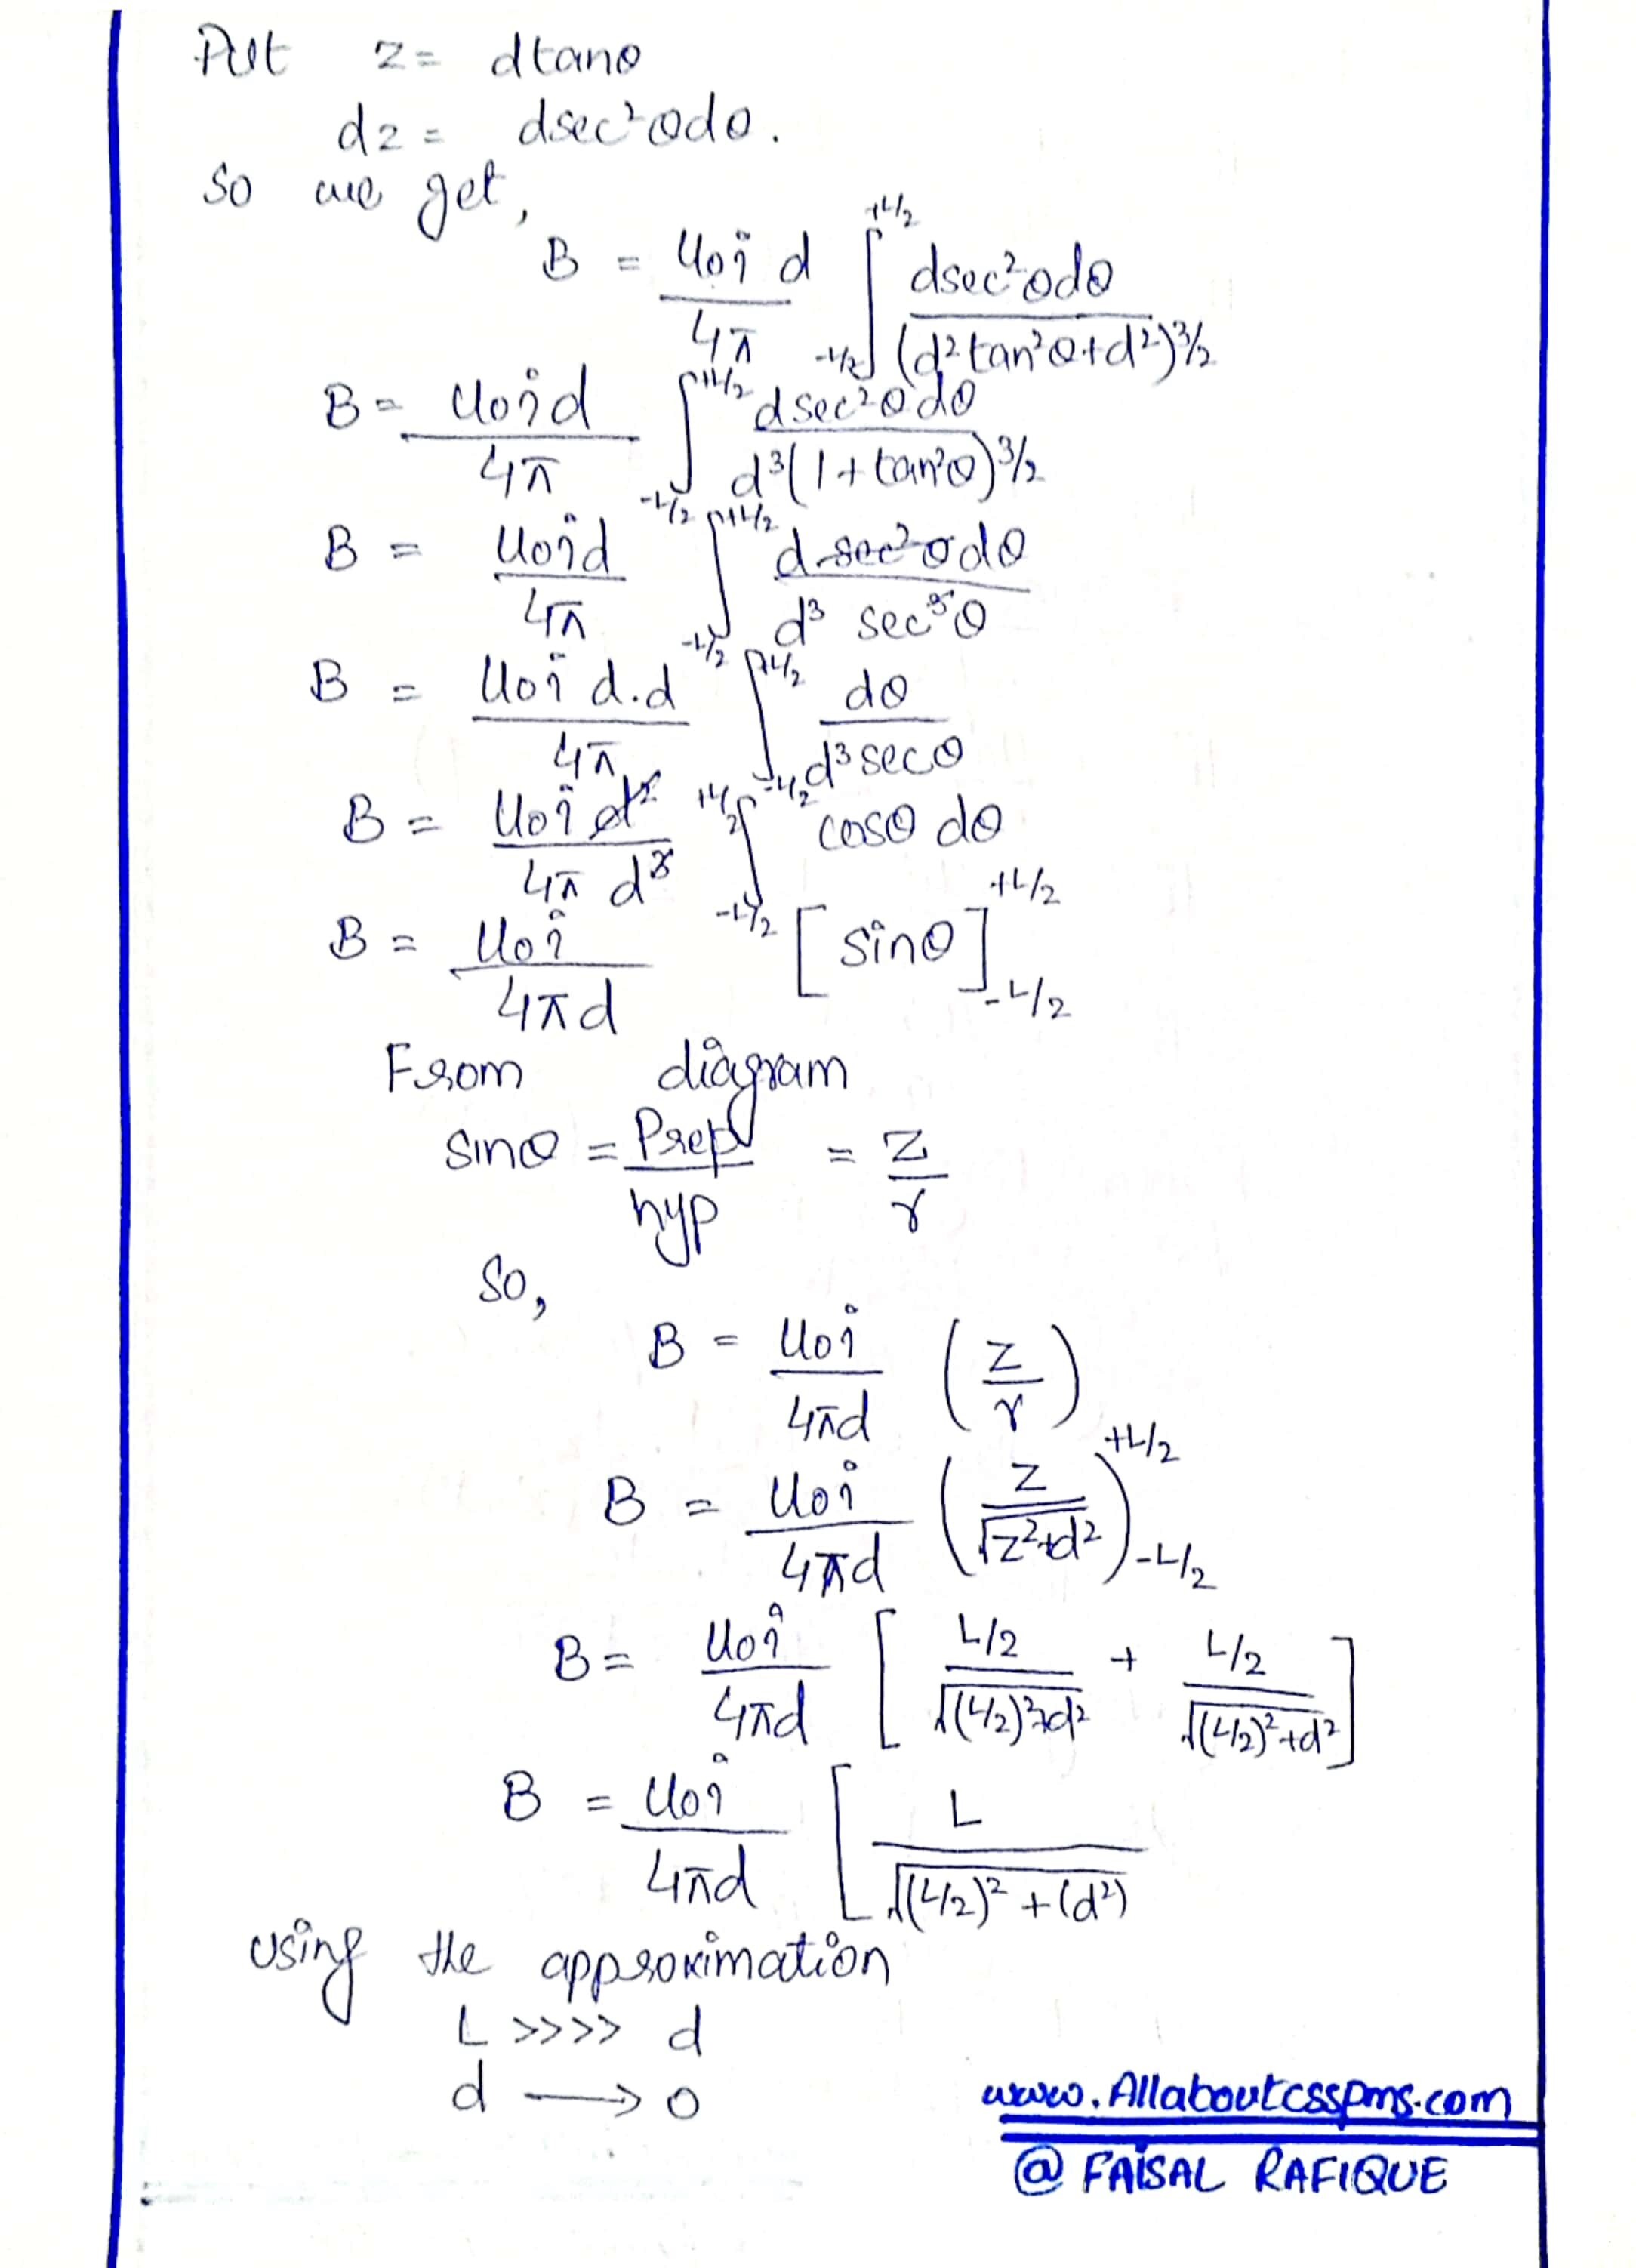 Put z = dtanθ
dz = dsec²θdθ.
So we get,
B = μ₀i d / 4π ∫_{-L/2}^{+L/2} dsec²θdθ / (d²tan²θ+d²)^{3/2}
B = μ₀id / 4π ∫_{-L/2}^{+L/2} dsec²θdθ / d³(1+tan²θ)^{3/2}
B = μ₀id / 4π ∫_{-L/2}^{+L/2} d sec²θdθ / d³ sec³θ
B = μ₀i d.d / 4π ∫_{-L/2}^{+L/2} dθ / d³secθ
B = μ₀i d² / 4π d³ ∫_{-L/2}^{+L/2} cosθ dθ
B = μ₀i / 4πd [sinθ]_{-L/2}^{+L/2}
From diagram
sinθ = Prep / hyp = z / r
So,
B = μ₀i / 4πd (z / r)
B = μ₀i / 4πd (z / √z²+d²)_{-L/2}^{+L/2}
B = μ₀i / 4πd [L/2 / √(L/2)²+d² + L/2 / √(L/2)²+d²]
B = μ₀i / 4πd [L / √(L/2)² + (d²)
using the approximation
L >>>> d
d → 0
www.Allaboutcsspms.com
@ FAISAL RAFIQUE